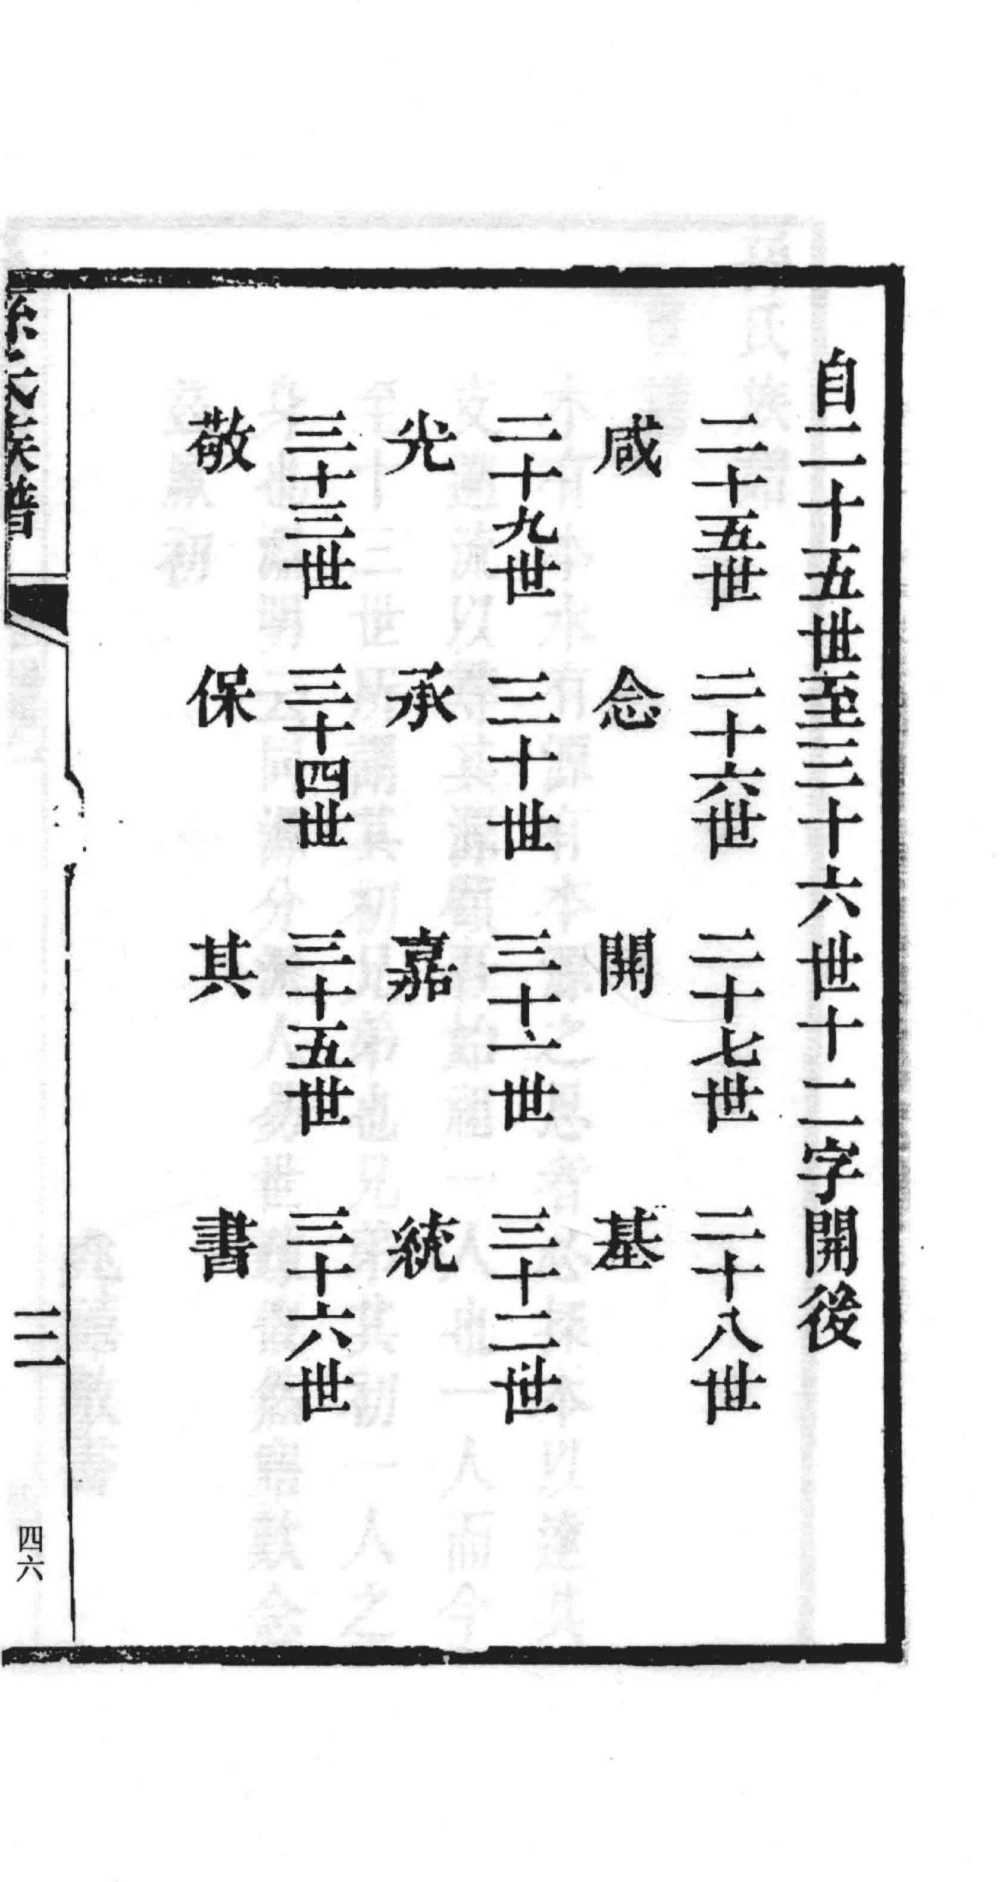 自二十五世至三十六世十二字開後
二十五世 二十六世 二十七世 二十八世
咸 念 開 基
二十九世 三十世 三十一世 三十二世
光 承 嘉 統
三十三世 三十四世 三十五世 三十六世
敬 保 其 書
孫氏族譜
二
四六